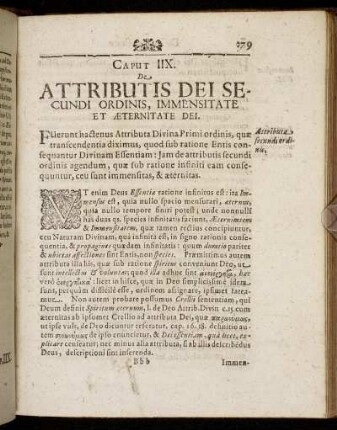 279
CAPUT IIX.
De
ATTRIBUTIS DEI SE-
CUNDI ORDINIS, IMMENSITATE
ET ÆTERNITATE DEI.
Fuerunt hactenus Attributa Divina Primi ordinis, quæ
transcendentia diximus, quod sub ratione Entis con-
sequantur Divinam Essentiam: Jam de attributis secundi
ordinis agendum, quæ sub ratione infiniti eam conse-
quuntur, ceu sunt immensitas, & æternitas.
Attributa
secundi ordi-
nis.
UT enim Deus Essentia ratione infinitus est: ita Im-
mensus est, quia nullo spacio mensurari, æternus,
quia nullo tempore finiri potest; unde nonnulli
hai duas qs. species infinitatis faciunt, Æternitatem
& Immensitatem, quæ tamen rectius concipiuntur,
ceu Naturam Divinam, quà infinita est, in signo rationis conse-
quentia, & propagines quædam infinitatis: ipsius
& affectiones: sint Entis, non species. Præmittimus autem
attributa illa his, quæ sub ratione Spiritus conveniunt Deo, ut
sunt intellectus & voluntas; quod illa adhuc sint
vero licet in hisce, quæ in Deo simplicissimo idem
sunt, perquàm difficile esse, ordinem assignare, ipsimet fatea-
mur. Non autem probare possumus Crellii sententiam, qui
Deum definit Spiritum æternum, l. de Deo Attrib. Divin. c. 15. cum
æternitas ab ipsomet Crellio ad attributa Dei, quæ
ut ipse vult, de Deo dicuntur referatur, cap. 16. 18. definitio au-
tem de ipso enuncietur, & Dei essentiam, quà licet, ex-
plicare censeatur; nec minus alia attributa, si ab illo delenbedus
Deus, descriptioni sint inserenda.
Bbb
Immen-